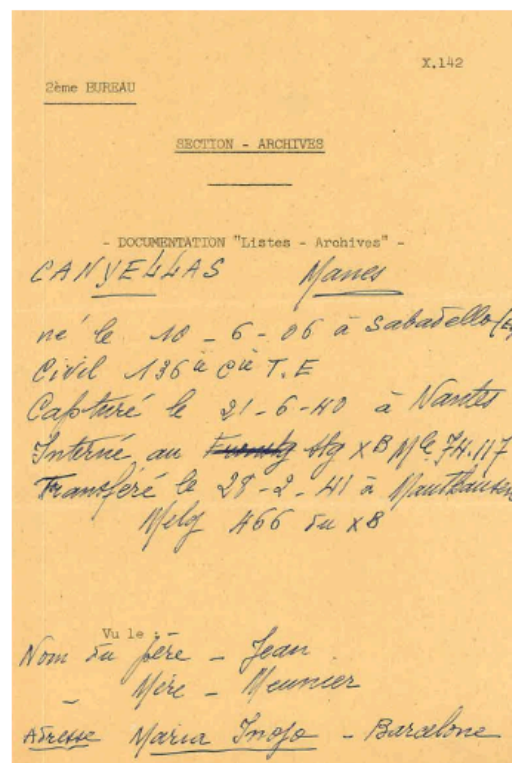 X.142
2ème BUREAU
SECTION - ARCHIVES
- DOCUMENTATION "Listes - Archives" -
CANYELLAS Manes
né le 10-6-06 à Sabadello (E
Civil 136è Cie T.E
Capturé le 21-6-40 à Nantes
Interné au Stg XB Mle 74.117
Transféré le 28-2-41 à Mauthausen
Melg 466 du XB
Vu le :
Nom du père - Jean
- Mère - Meunier
Adresse Maria Inojo - Barcelone